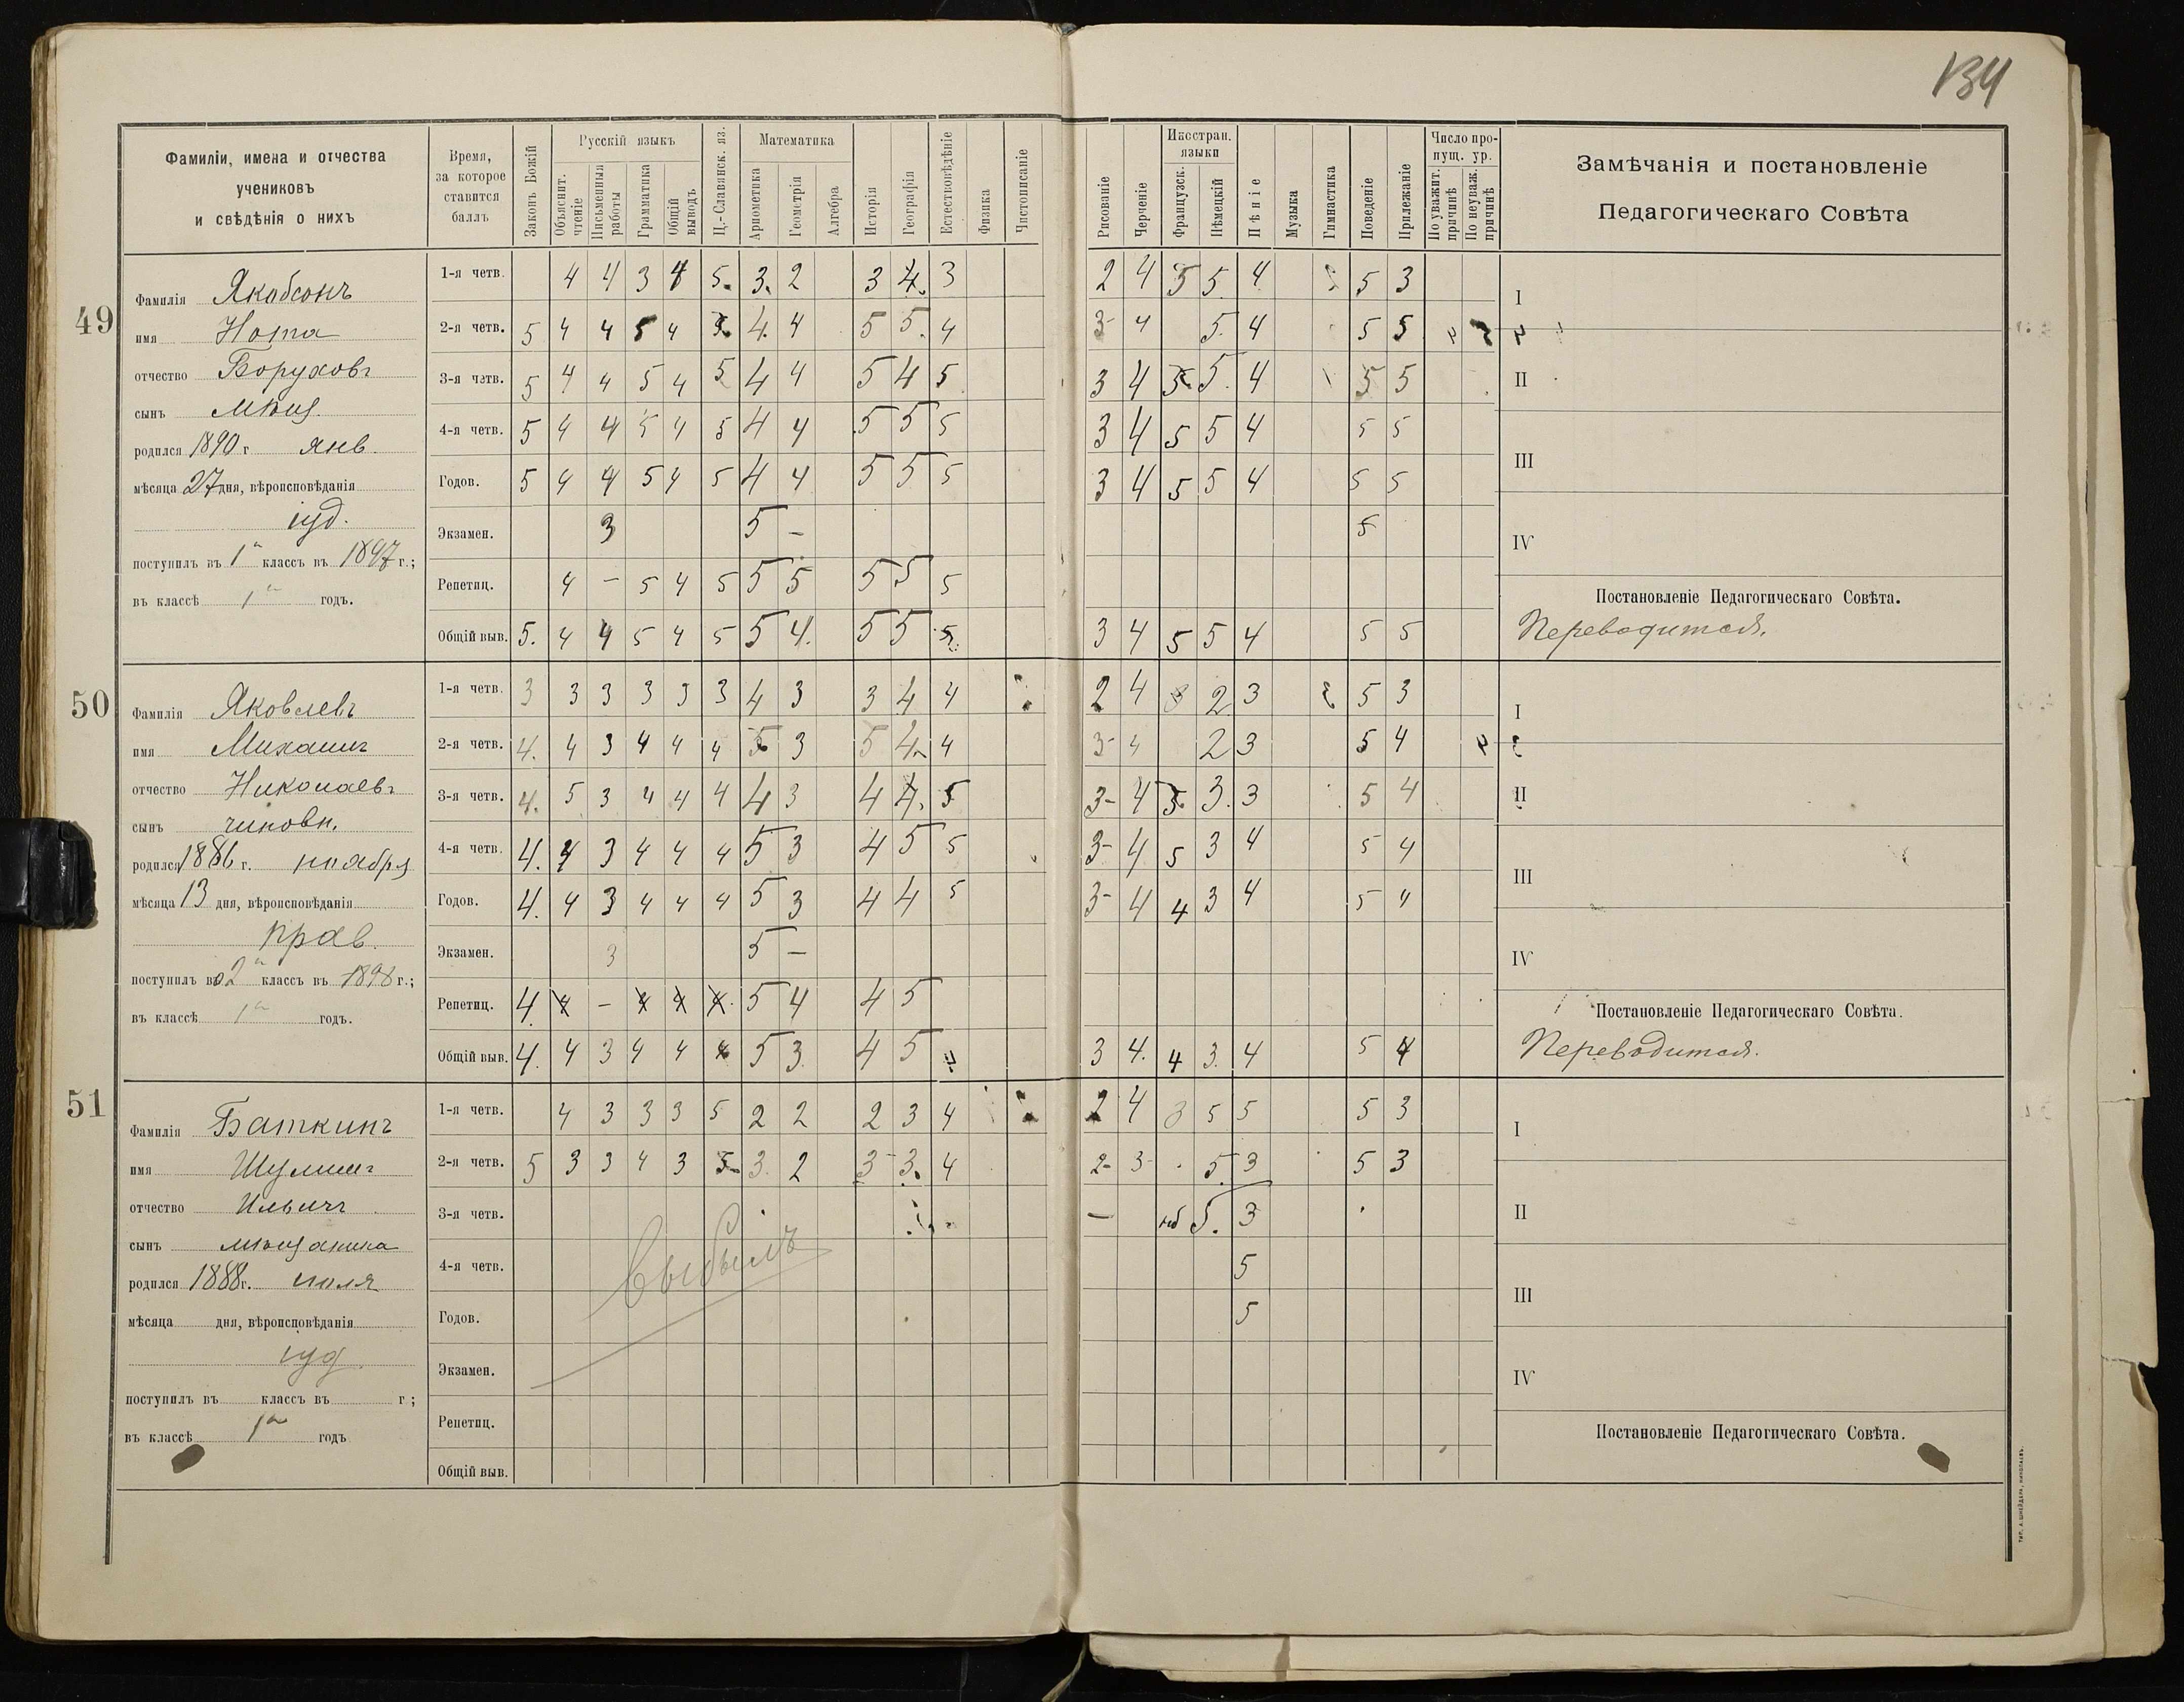 134
Фамиліи, имена и отчества
учениковъ
и свѣдѣнія о нихъ
Время,
за которое
ставится
баллъ
Законъ Божій
Русскій языкъ
Объяснит. чтеніе
Письменныя работы
Грамматика
Общій выводъ
Ц.-Славянск. яз.
Математика
Ариѳметика
Геометрія
Алгебра
Исторія
Географія
Естествовѣдѣніе
Физика
Чистописаніе
Рисованіе
Черченіе
Иностран. языки
Французск.
Нѣмецкій
Пѣніе
Музыка
Гимнастика
Поведеніе
Прилежаніе
Число пропущ. ур.
По уважит. причинѣ
По неуваж. причинѣ
Замѣчанія и постановленіе
Педагогическаго Совѣта
49
Фамилія Якобсонъ
имя Нота
отчество Боруховъ
сынъ мѣщ.
родился 1890 г янв.
мѣсяца 27 дня, вѣроисповѣданія
іуд.
поступилъ въ 1й классъ въ 1897 г.;
въ классѣ 1й годъ.
1-я четв. 4 4 3 4 5. 3. 2 3 4. 3 2 4 5 5. 4 5 3
2-я четв. 5 4 4 5 4 4. 4 5 5. 4 3- 4 5. 4 5 5
3-я четв. 5 4 4 5 4 5 4 4 5 4 5 3 4 5. 4 5 5
4-я четв. 5 4 4 5 4 5 4 4 5 5 5 3 4 5 5 4 5 5
Годов. 5 4 4 5 4 5 4 4 5 5 5 3 4 5 5 4 5 5
Экзамен. 3 5 – 5
Репетиц. 4 – 5 4 5 5 5 5 5 5
Общій выв. 5. 4 4 5 4 5 5 4. 5 5 5. 3 4 5 5 4 5 5
I
II
III
IV
Постановленіе Педагогическаго Совѣта.
Переводится.
50
Фамилія Яковлевъ
имя Михаилъ
отчество Николаевъ
сынъ чиновн.
родился 1886 г. ноября
мѣсяца 13 дня, вѣроисповѣданія
прав.
поступилъ во 2й классъ въ 1898 г.;
въ классѣ 1й годъ.
1-я четв. 3 3 3 3 3 3 4 3 3 4 4 2 4 3 2. 3 5 3
2-я четв. 4. 4 3 4 4 4 5 3 5 4 4 3- 4 2 3 5 4
3-я четв. 4. 5 3 4 4 4 4 3 4 4. 5 3- 4 3. 3. 3 5 4
4-я четв. 4. 4 3 4 4 4 5 3 4 5 5 3- 4 5 3 4 5 4
Годов. 4. 4 3 4 4 4 5 3 4 4 5 3- 4 4 3 4 5 4
Экзамен. 3 5 –
Репетиц. 4. – 5 4 4 5
Общій выв. 4. 4 3 4 4 4 5 3. 4 5 3 4. 4 3. 4 5 4
I
II
III
IV
Постановленіе Педагогическаго Совѣта.
Переводится.
51
Фамилія Баткинъ
имя Шулимъ
отчество Ильичъ
сынъ мѣщанина
родился 1888 г. июля
мѣсяца дня, вѣроисповѣданія
іуд.
поступилъ въ классъ въ г;
въ классѣ 1й годъ
1-я четв. 4 3 3 3 5 2 2 2 3 4 2 4 3 5 5 5 3
2-я четв. 5 3 3 4 3 5 3. 2 3 3. 4 2- 3- 5. 3 5 3
3-я четв. – нб 5. 3
4-я четв. 5
Годов. 5
Экзамен.
Репетиц.
Общій выв.
Выбылъ
I
II
III
IV
Постановленіе Педагогическаго Совѣта.